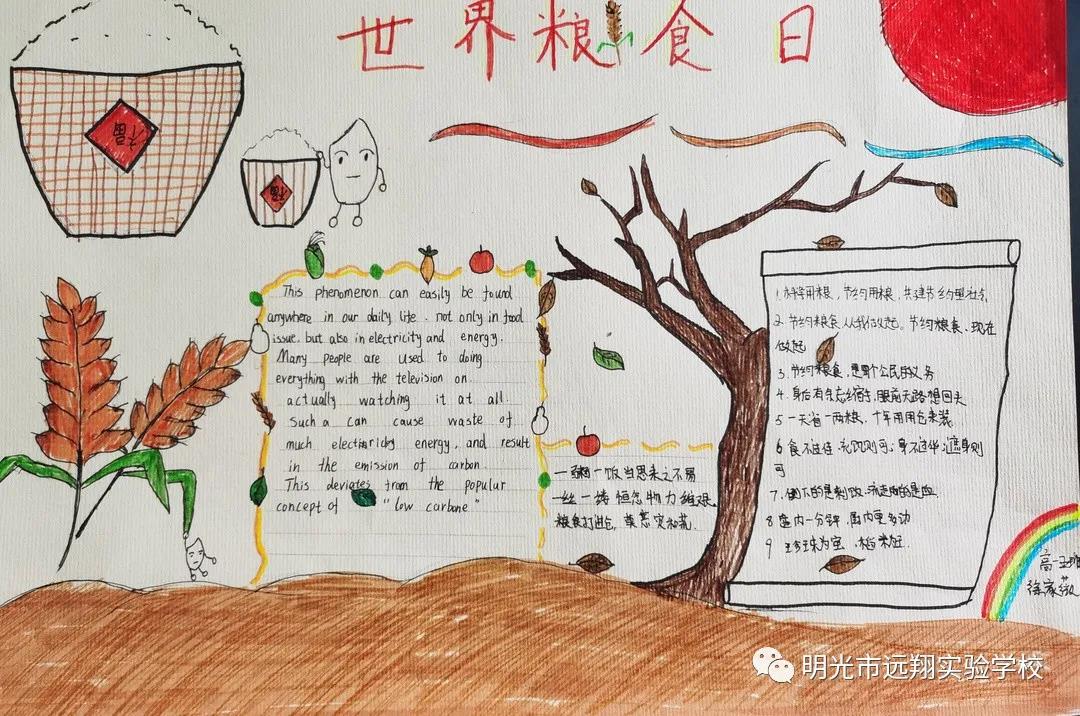 世界粮食日
福
福
This phenomenon can easily be found
anywhere in our daily life . not only in food
issue. but also in electricity and energy.
Many people are used to doing
everything with the television on
actually watching it at all.
Such a can cause waste of
much energy, and result
in the emission of carbon.
This deviates from the popular
concept of "low carbone"
一粥一饭当思来之不易
一丝一缕恒念物力维艰
粮食打进仓，莫忘灾和荒.
1.科学用粮，节约用粮，共建节约型社会
2.节约粮食从我做起。节约粮食、现在
做起
3.节约粮食，是每个公民的义务
4.身后有余忘缩手，眼前无路想回头
5.一天省一两粮、十年用用仓来装
6.食不过饱，无饥则可；身不过华，遮身则
可
7.倒下的是剩饭，流走的是血
8.盘内一分钟，田内更多功
9.珍珠为宝，稻米为王.
高一五班
徐家薇
明光市远翔实验学校